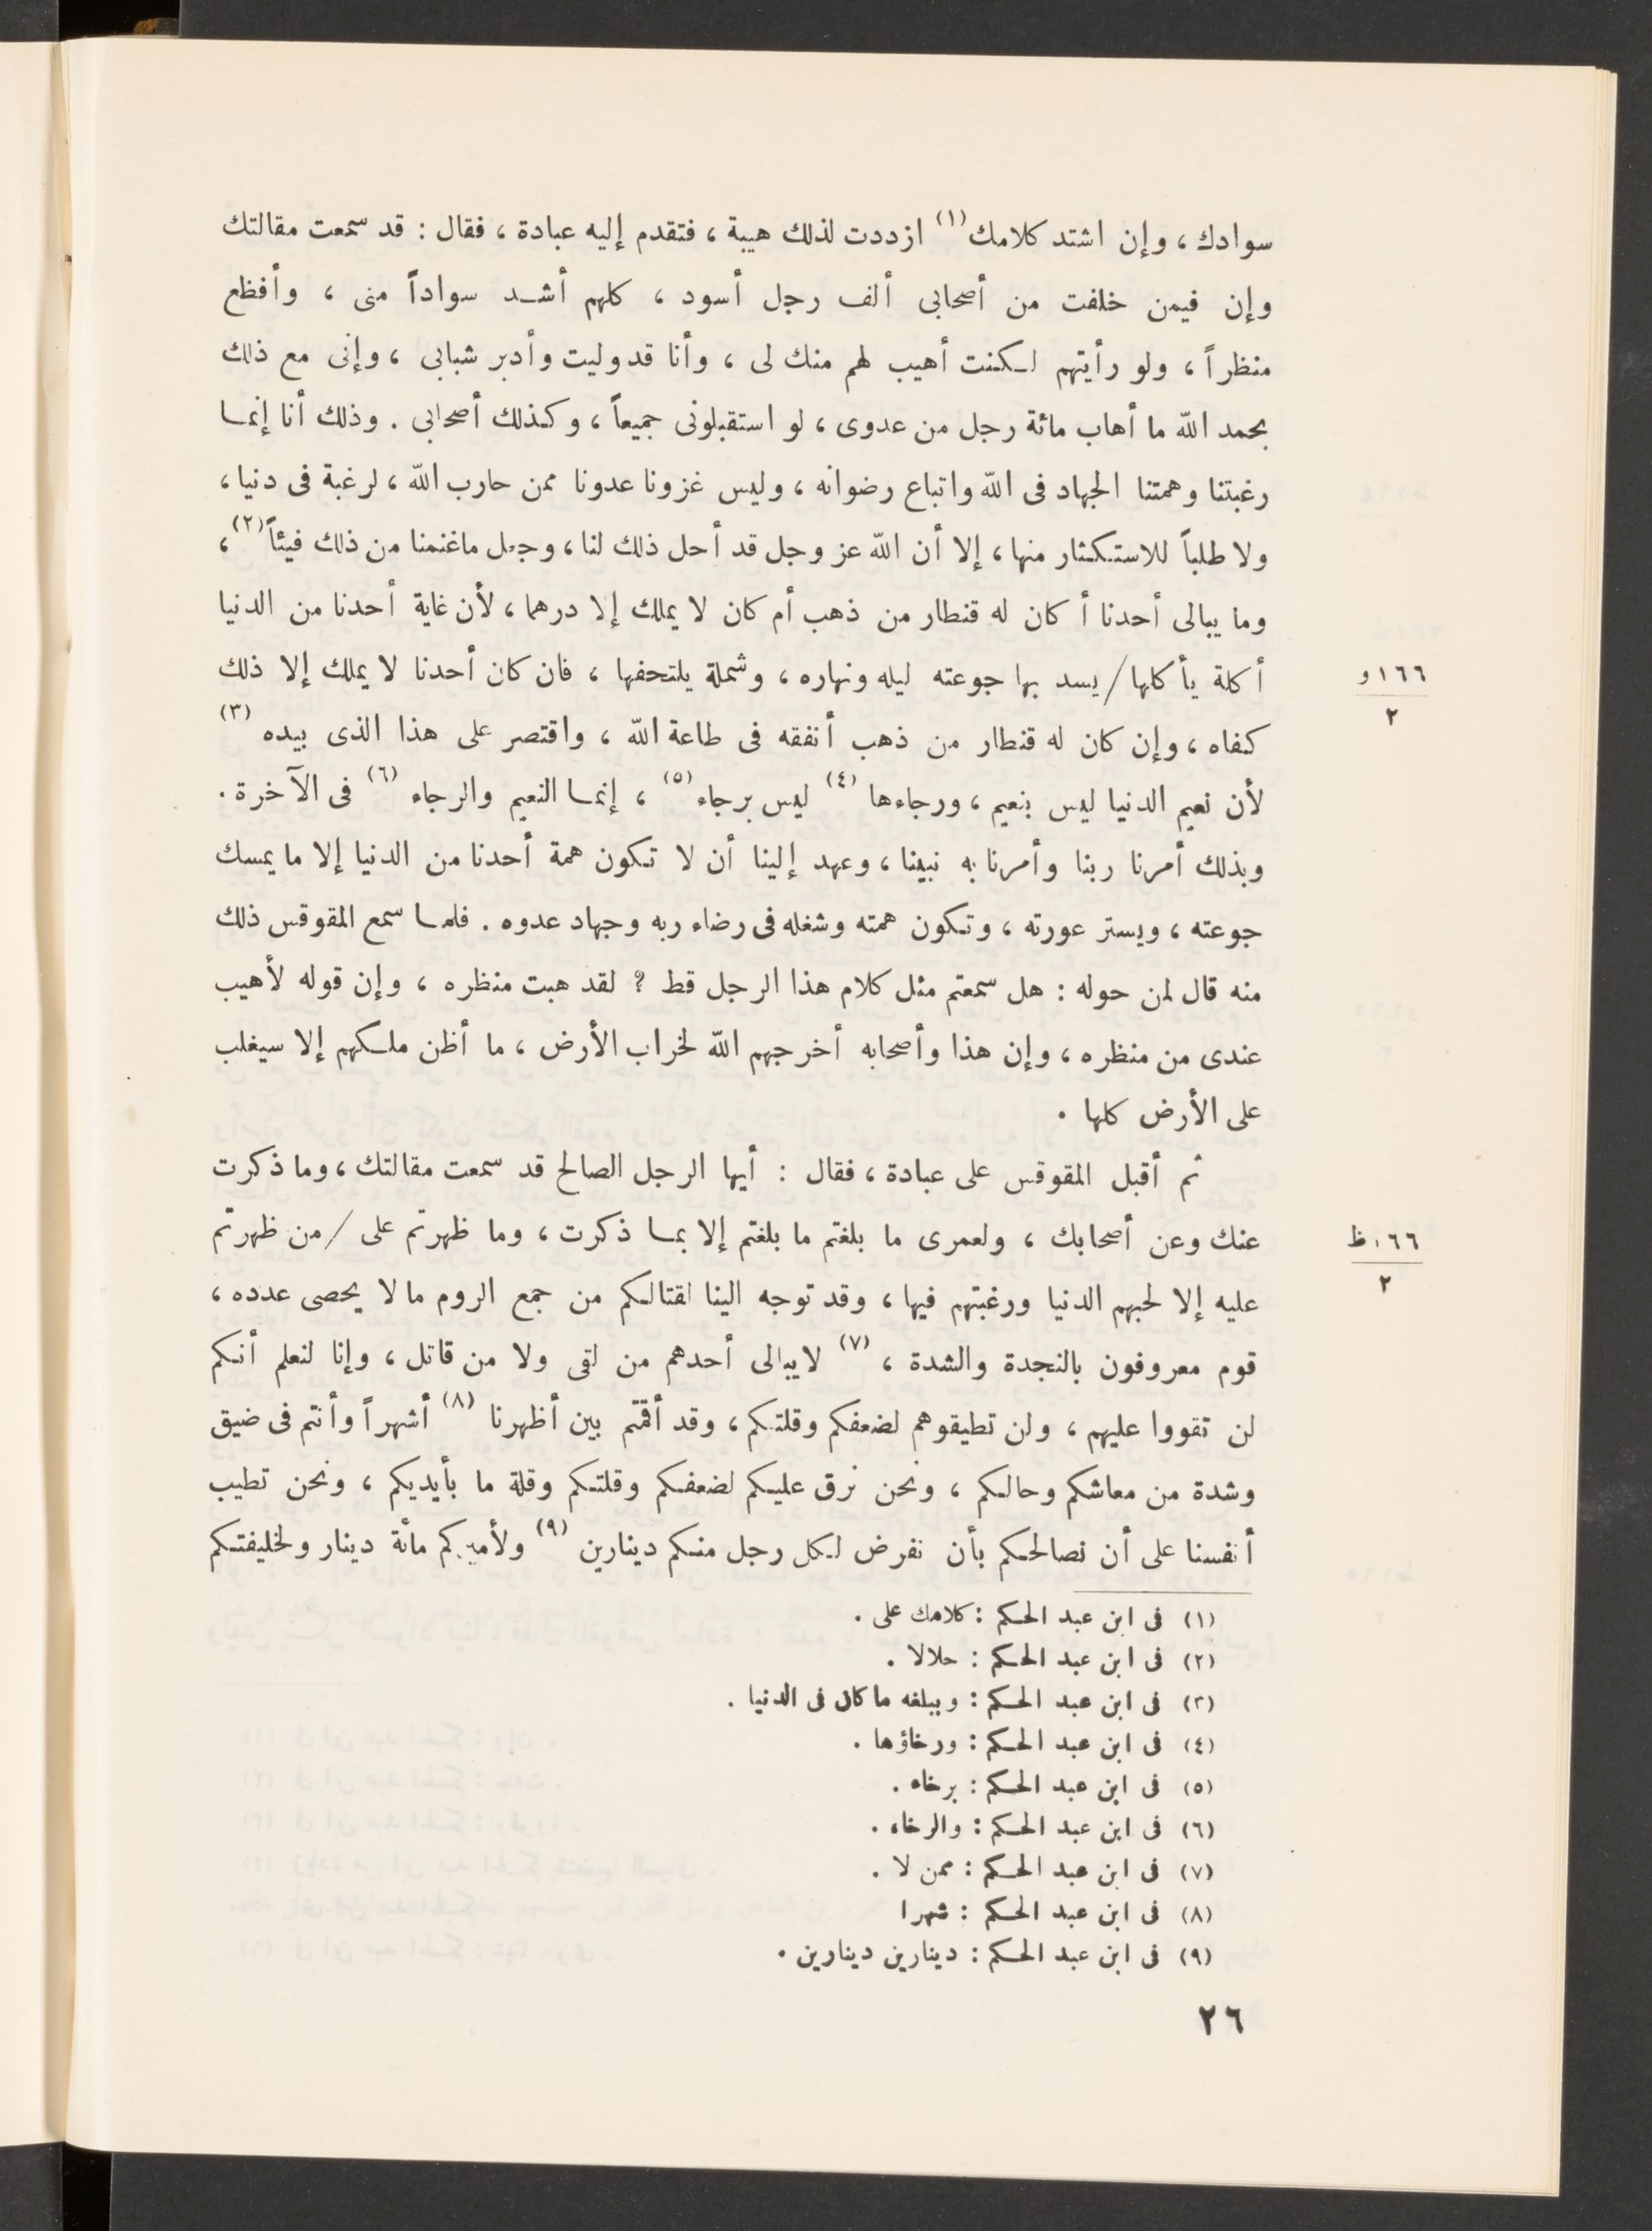 سوادك ، وإن اشتد كلامك (١) ازددت لذلك هيبة ، فتقدم إليه عبادة ، فقال : قد سمعت مقالتك
وإن فيمن خلفت من أصحابى ألف رجل أسود ، كلهم أشد سواداً منى ، وأفظع
منظراً ، ولو رأيتهم لكنت أهيب لهم منك لى ، وأنا قد وليت وأدبر شبابى ، وإنى مع ذلك
بحمد الله ما أهاب مائة رجل من عدوى ، لو استقبلونى جميعاً ، وكذلك أصحابى . وذلك أنا إنما
رغبتنا وهمتنا الجهاد فى الله واتباع رضوانه ، وليس غزونا عدونا ممن حارب الله ، لرغبة فى دنيا ،
ولا طلباً للاستكثار منها ، إلا أن الله عز وجل قد أحل ذلك لنا ، وجعل ماغنمنا من ذلك فيئاً (٢) ،
وما يبالى أحدنا أ كان له قنطار من ذهب أم كان لا يملك إلا درهما ، لأن غاية أحدنا من الدنيا
أكلة يأكلها / يسد بها جوعته ليله ونهاره ، وشملة يلتحفها ، فان كان أحدنا لا يملك إلا ذلك
١٦٦ و
٢
كفاه ، وإن كان له قنطار من ذهب أنفقه فى طاعة الله ، واقتصر على هذا الذى بيده (٣)
لأن نعيم الدنيا ليس بنعيم ، ورجاءها (٤) ليس برجاء (٥) ، إنما النعيم والرجاء (٦) فى الآخرة .
وبذلك أمرنا ربنا وأمرنا به نبينا ، وعهد إلينا أن لا تكون همة أحدنا من الدنيا إلا ما يمسك
جوعته ، ويستر عورته ، وتكون همته وشغله فى رضاء ربه وجهاد عدوه . فلما سمع المقوقس ذلك
منه قال لمن حوله : هل سمعتم مثل كلام هذا الرجل قط ؟ لقد هبت منظره ، وإن قوله لأهيب
عندى من منظره ، وإن هذا وأصحابه أخرجهم الله لخراب الأرض ، ما أظن ملكهم إلا سيغلب
على الأرض كلها .
ثم أقبل المقوقس على عبادة ، فقال : أيها الرجل الصالح قد سمعت مقالتك ، وما ذكرت
عنك وعن أصحابك ، ولعمرى ما بلغتم ما بلغتم إلا بما ذكرت ، وما ظهرتم على / من ظهرتم
١٦٦ ظ
٢
عليه إلا لحبهم الدنيا ورغبتهم فيها ، وقد توجه الينا لقتالكم من جمع الروم ما لا يحصى عدده ،
قوم معروفون بالنجدة والشدة ، (٧) لا يبالى أحدهم من لقى ولا من قاتل ، وإنا لنعلم أنكم
لن تقووا عليهم ، ولن تطيقوهم لضعفكم وقلتكم ، وقد أقمتم بين أظهرنا (٨) أشهراً وأنتم فى ضيق
وشدة من معاشكم وحالكم ، ونحن نرق عليكم لضعفكم وقلتكم وقلة ما بأيديكم ، ونحن تطيب
أنفسنا على أن نصالحكم بأن نفرض لكل رجل منكم دينارين (٩) ولأميركم مائة دينار ولخليفتكم
(١) فى ابن عبد الحكم : كلامك على .
(٢) فى ابن عبد الحكم : حلالا .
(٣) فى ابن عبد الحكم : ويبلغه ما كان فى الدنيا .
(٤) فى ابن عبد الحكم : ورخاؤها .
(٥) فى ابن عبد الحكم : برخاء .
(٦) فى ابن عبد الحكم : والرخاء .
(٧) فى ابن عبد الحكم : ممن لا .
(٨) فى ابن عبد الحكم : شهرا
(٩) فى ابن عبد الحكم : دينارين دينارين .
٢٦